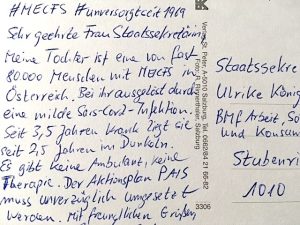 #MECFS #unversorgtseit1969
Sehr geehrte Frau Staatssekretärin
Meine Tochter ist eine von fast
80000 Menschen mit MECFS in
Österreich. Bei ihr ausgelöst durch
eine milde Sars-Cov2-Infektion.
Seit 3,5 Jahren krank liegt sie
seit 2,5 Jahren im Dunkeln.
Es gibt keine Ambulanz, keine
Therapie. Der Aktionsplan PAIS
muss unverzüglich umgesetzt
werden. Mit freundlichen Grüßen
St. Peter, A-5010 Salzburg
Salzburg, Tel. 0662/84 21 66-82
3306
Staatssekre
Ulrike König
BMf Arbeit, So
und Konsum
Stubenri
1010